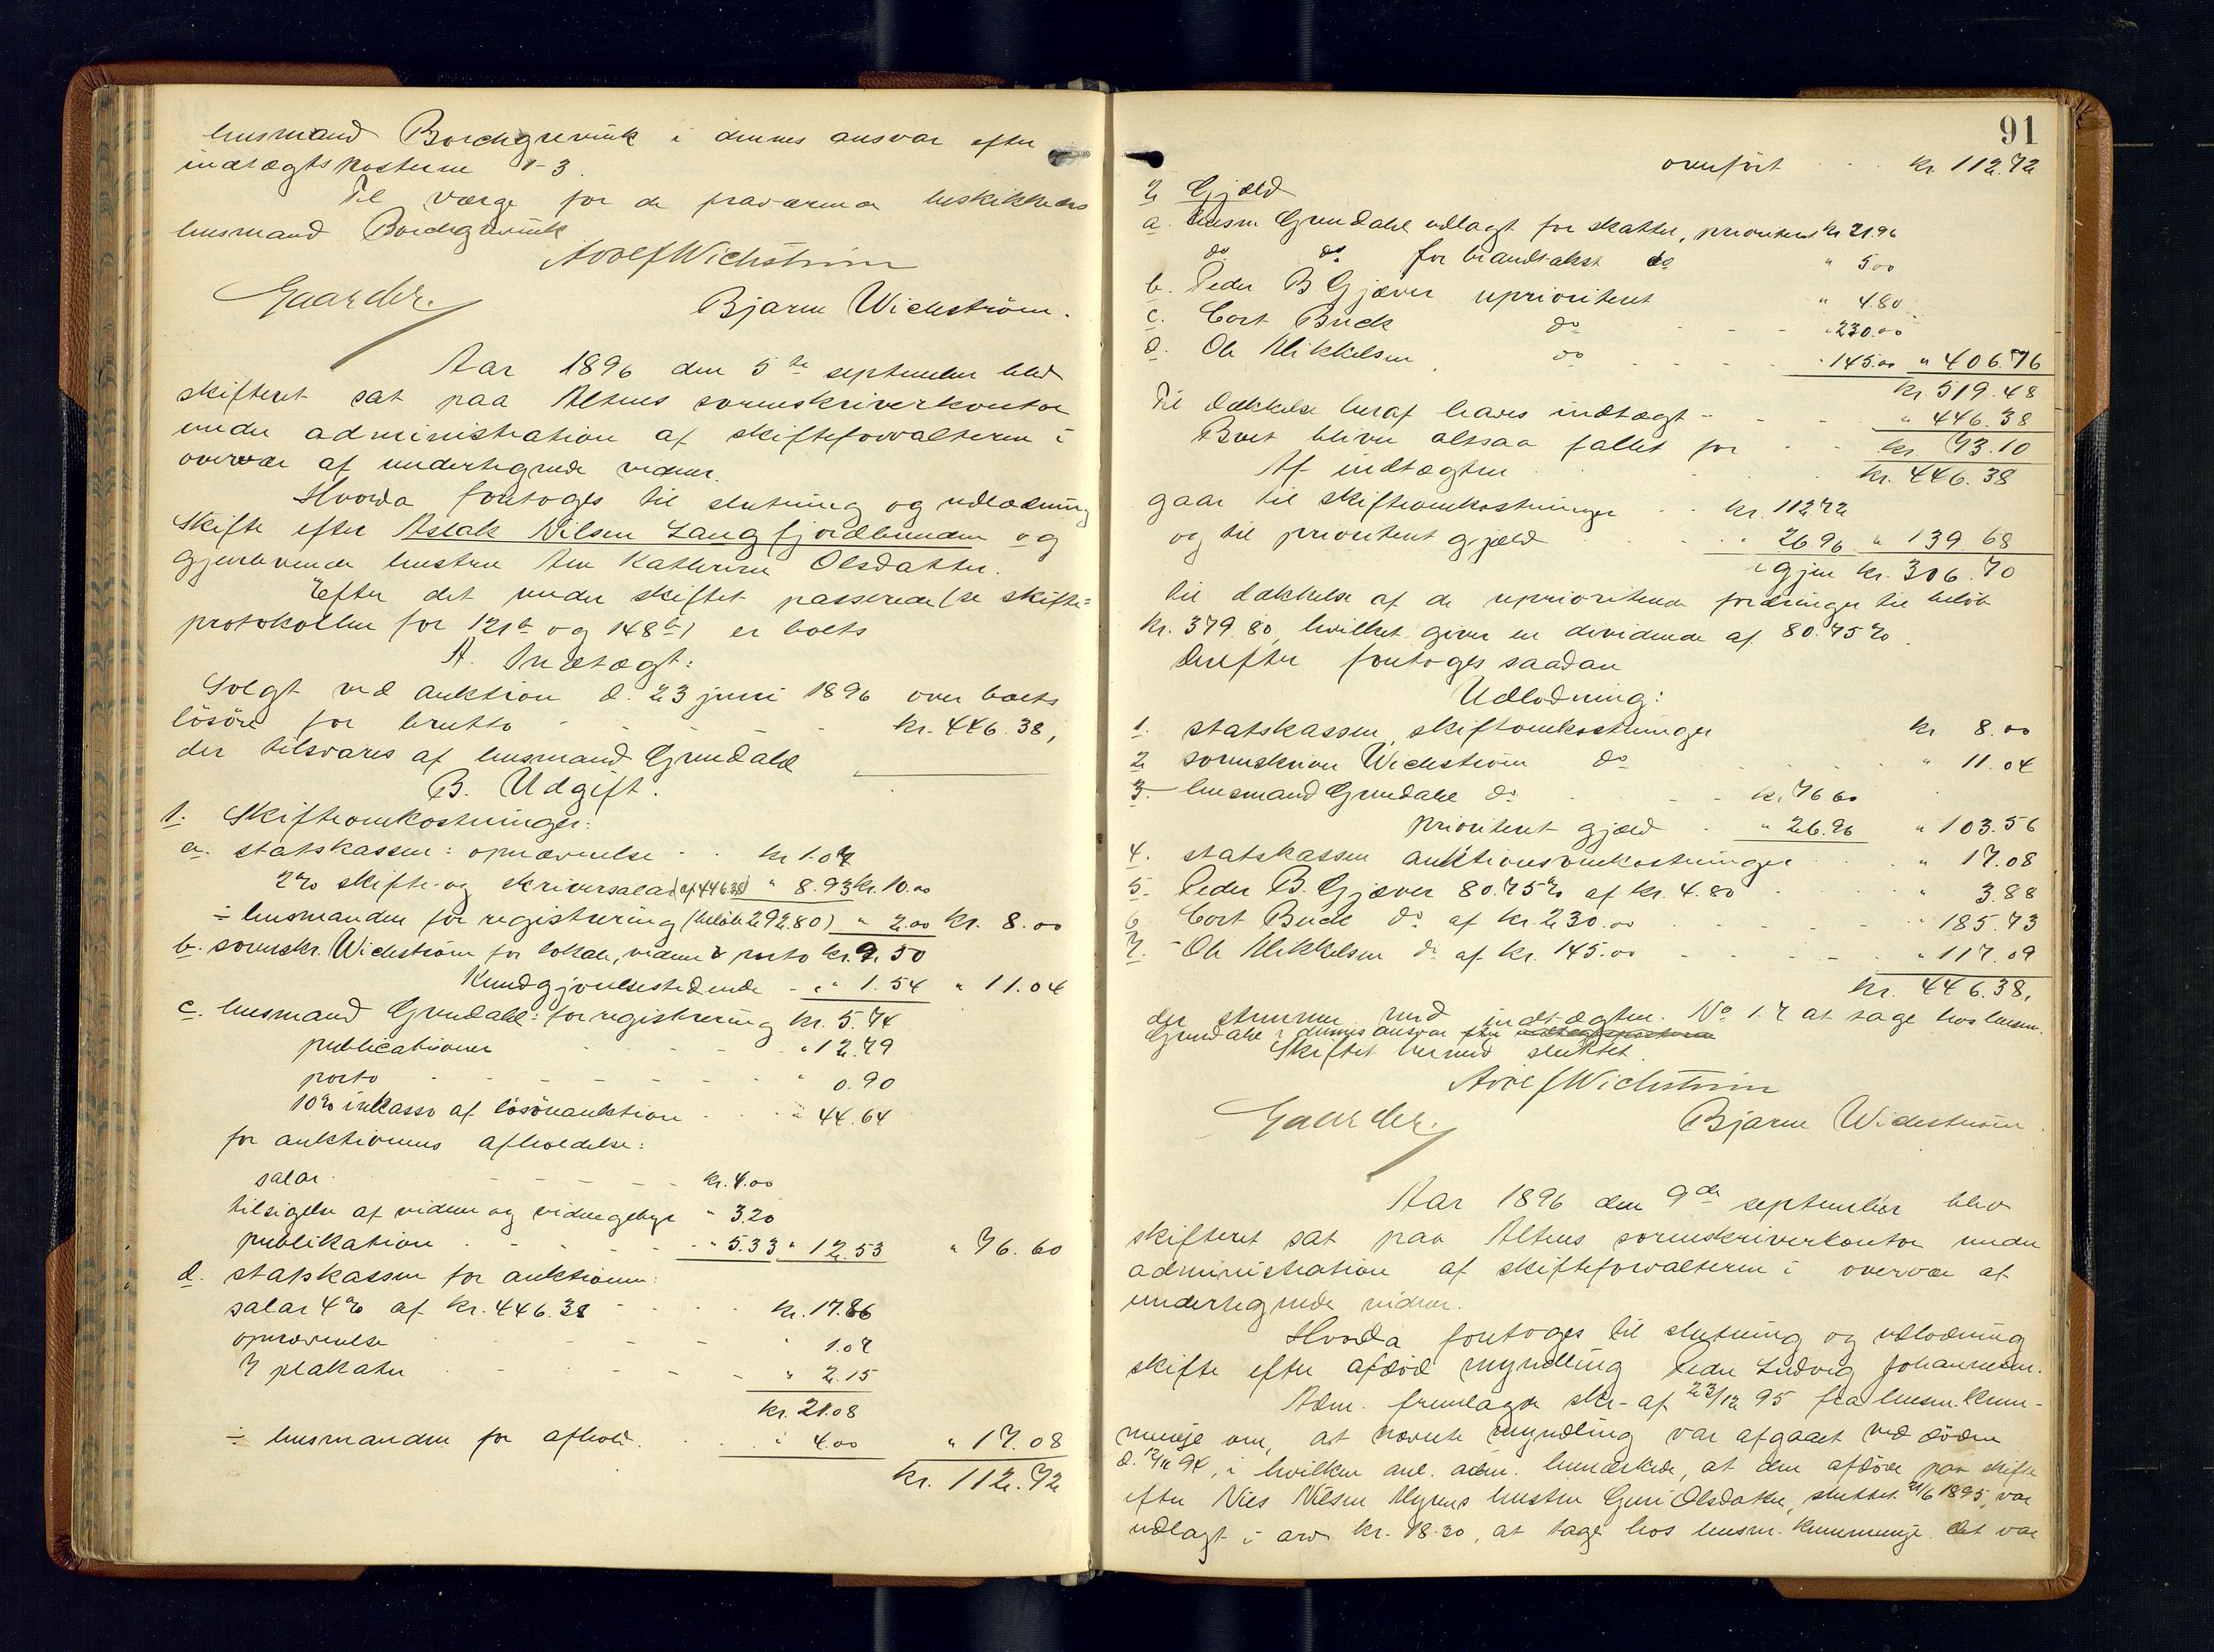 lensmand Borchgrevink i dennes ansvar efter
indtægtsposterne 1-3.
Til værge for de fraværende beskikkedes
lensmand Borchgrevink
Adolf Wichstrøm
Gaarder.
Bjarne Wichström.
Aar 1896 den 5te september blev
skifteret sat paa Altens sorenskriverkontor
under administration af skifteforvalteren i
overvær af undertegnede vidner.
Hvorda foretoges til slutning og udlodning
Skifte efter Aslak Nilsen Langfjordbunden og
gjenlevende hustru Ane Kathrine Olsdatter.
Efter det under skiftet passerede (se skifte-
protokollen fol 121b og 148b) er boets
A. Indtægt:
Solgt ved auktion d. 23 juni 1896 over boets
lösöre for brutto - - - kr. 446.38,
der tilsvares af lensmand Grundahl
B. Udgift.
1. Skifteomkostninger:
a. statskassen: opnævnelse - - kr 1.07
2% skifte- og skriversalar (af 446.38) " 8.93 kr. 10.00
÷ lensmanden for registrering (beløb 292.80) " 2.00 kr. 8.00
b. sorenskr. Wichström for lokale, vidner & porto kr. 9.50
Kundgjörelsestidende - " 1.54 " 11.04
c. lensmand Grundahl: for registrering kr. 5.74
publicationer - - - " 12.79
porto - - - " 0.90
10% inkasso af lösöreauktion - - " 44.64
for auktionens afholdelse:
salar - - - kr. 4.00
tilsigelse af vidner og vidnegebyr " 3.20
publikation - - - " 5.33 " 12.53 " 76.60
d. statskassen for auktionen:
salar 4% af kr. 446.38 - - kr. 17.86
opnævnelse - - - " 1.07
7 plakater - - - " 2.15
kr. 21.08
÷ lensmanden for afhold. - - " 4.00 " 17.08
kr. 112.72
91
overfört - - kr. 112.72
2. Gjæld
a. lensm Grundahl udlagt for skatter, prioriteret kr 21.96
do do for brandtakst do " 5.00
b. Peder B Gjæver uprioriteret " 4.80
c. Cort Buck do - - - " 230.00
d. Ole Mikkelsen do - - - " 145.00 " 406.76
kr 519.48
Til dækkelse heraf haves indtægt - - " 446.38
Boet bliver altsaa fallit for - - kr. 73.10
Af indtægten - - kr. 446.38
gaar til skifteomkostninger - - kr. 112.72
og til prioriteret gjæld - - " 26.96 " 139.68
igjen kr. 306.70
til dækkelse af de uprioriterede fordringer til beløb
kr. 379.80, hvilket giver en dividende af 80.75%.
Derefter foretoges saadan
Udlodning:
1. statskassen, skifteomkostninger kr 8.00
2. sorenskriver Wichström do - - - " 11.04
3. lensmand Grundahl do - - kr. 76.60
prioriteret gjæld - " 26.96 " 103.56
4. statskassen auktionsomkostninger - - " 17.08
5. Peder B. Gjæver 80.75% af kr. 4.80 - - " 3.88
6. Cort Buck do af kr. 230.00 - - - " 185.73
7. Ole Mikkelsen do af kr. 145.00 - - - " 117.09
kr. 446.38,
der stemmer med indtægten. No 1-7 at tage hos lensm.
Grundahl i dennes ansvar
Skiftet hermed sluttet.
Adolf Wichstrøm
Gaarder.
Bjarne Wichström.
Aar 1896 den 9de september blev
skifteret sat paa Altens sorenskriverkontor under
administration af skifteforvalteren i overvær af
undertegnede vidner.
Hvorda foretoges til slutning og udlodning
skifte efter afdöd myndling Peder Ludvig Johannesen.
Adm. fremlagde skr. af 23/12 95 fra lensm. Klem-
metsje om, at nævnte myndling var afgaaet ved döden
d. 12/11 94, i hvilken anl. adm. bemærkede, at den afdöde paa skifte
efter Niels Nilsen Myrens hustru Guri Olsdatter, sluttet 21/6 1895, var
udlagt i arv kr. 18.30, at tage hos lensm. det var